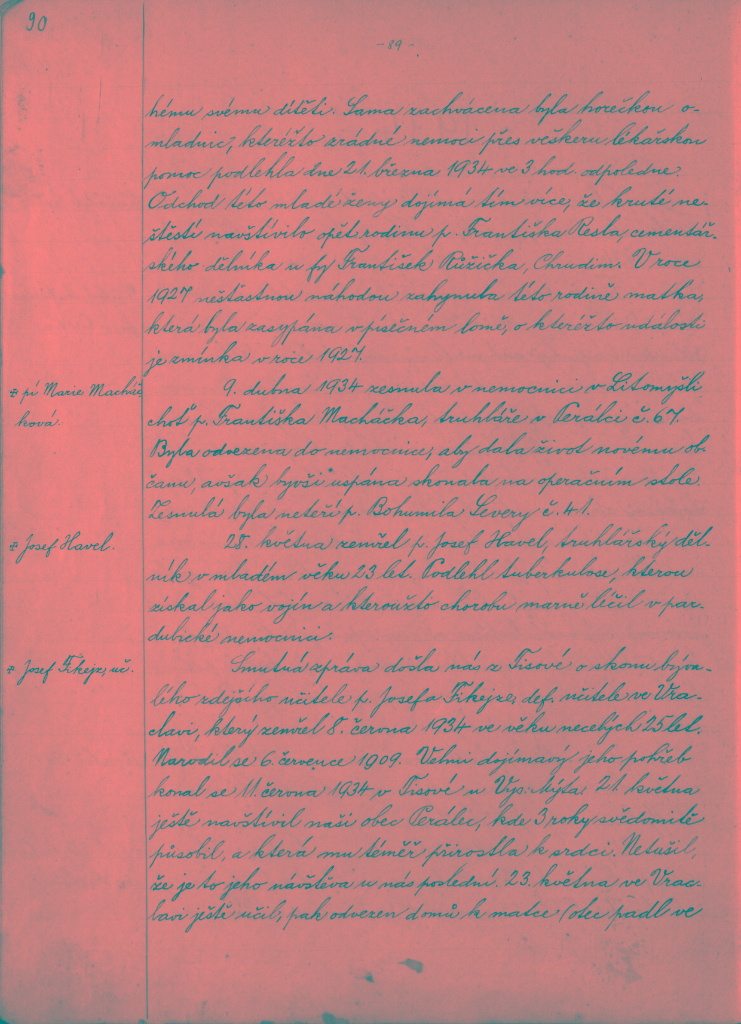 90
- 89 -
hému svému dítěti. Sama zachvácena byla horečkou o-
mladnic, kteréžto zrádné nemoci přes veškeru lékařskou
pomoc podlehla dne 21. března 1934 ve 3 hod. odpoledne.
Odchod této mladé ženy dojímá tím více, že kruté ne-
štěstí navštívilo opět rodinu p. Františka Resla, cementář-
ského dělníka u fy František Růžička, Chrudim. V roce
1927 nešťastnou náhodou zahynula této rodině matka,
která byla zasypána v písečném lomě, o kteréžto události
je zmínka v roce 1927.
✠ pí Marie Macháč
ková.
9. dubna 1934 zesnula v nemocnici v Litomyšli
choť p. Františka Macháčka, truhláře v Perálci č. 67.
Byla odvezena do nemocnice, aby dala život novému ob-
čanu, avšak byvši uspána skonala na operačním stole.
Zesnulá byla neteří p. Bohumila Severy č. 41.
✠ Josef Havel.
28. května zemřel p. Josef Havel, truhlářský děl-
ník v mladém věku 23 let. Podlehl tuberkulose, kterou
získal jako vojín a kteroužto chorobu marně léčil v par-
dubické nemocnici.
✠ Josef Fikejz, uč.
Smutná zpráva došla nás z Tisové o skonu býva-
lého zdejšího učitele p. Josefa Fikejze, def. učitele ve Vra-
clavi, který zemřel 8. června 1934 ve věku necelých 25 let.
Narodil se 6. července 1909. Velmi dojímavý jeho pohřeb
konal se 11. června 1934 v Tisové u Vys. Mýta. 21. května
ještě navštívil naši obec Perálec, kde 3 roky svědomitě
působil, a která mu téměř přirostla k srdci. Netušil,
že je to jeho návštěva u nás poslední. 23. května ve Vrac-
lavi ještě učil, pak odvezen domů k matce (otec padl ve